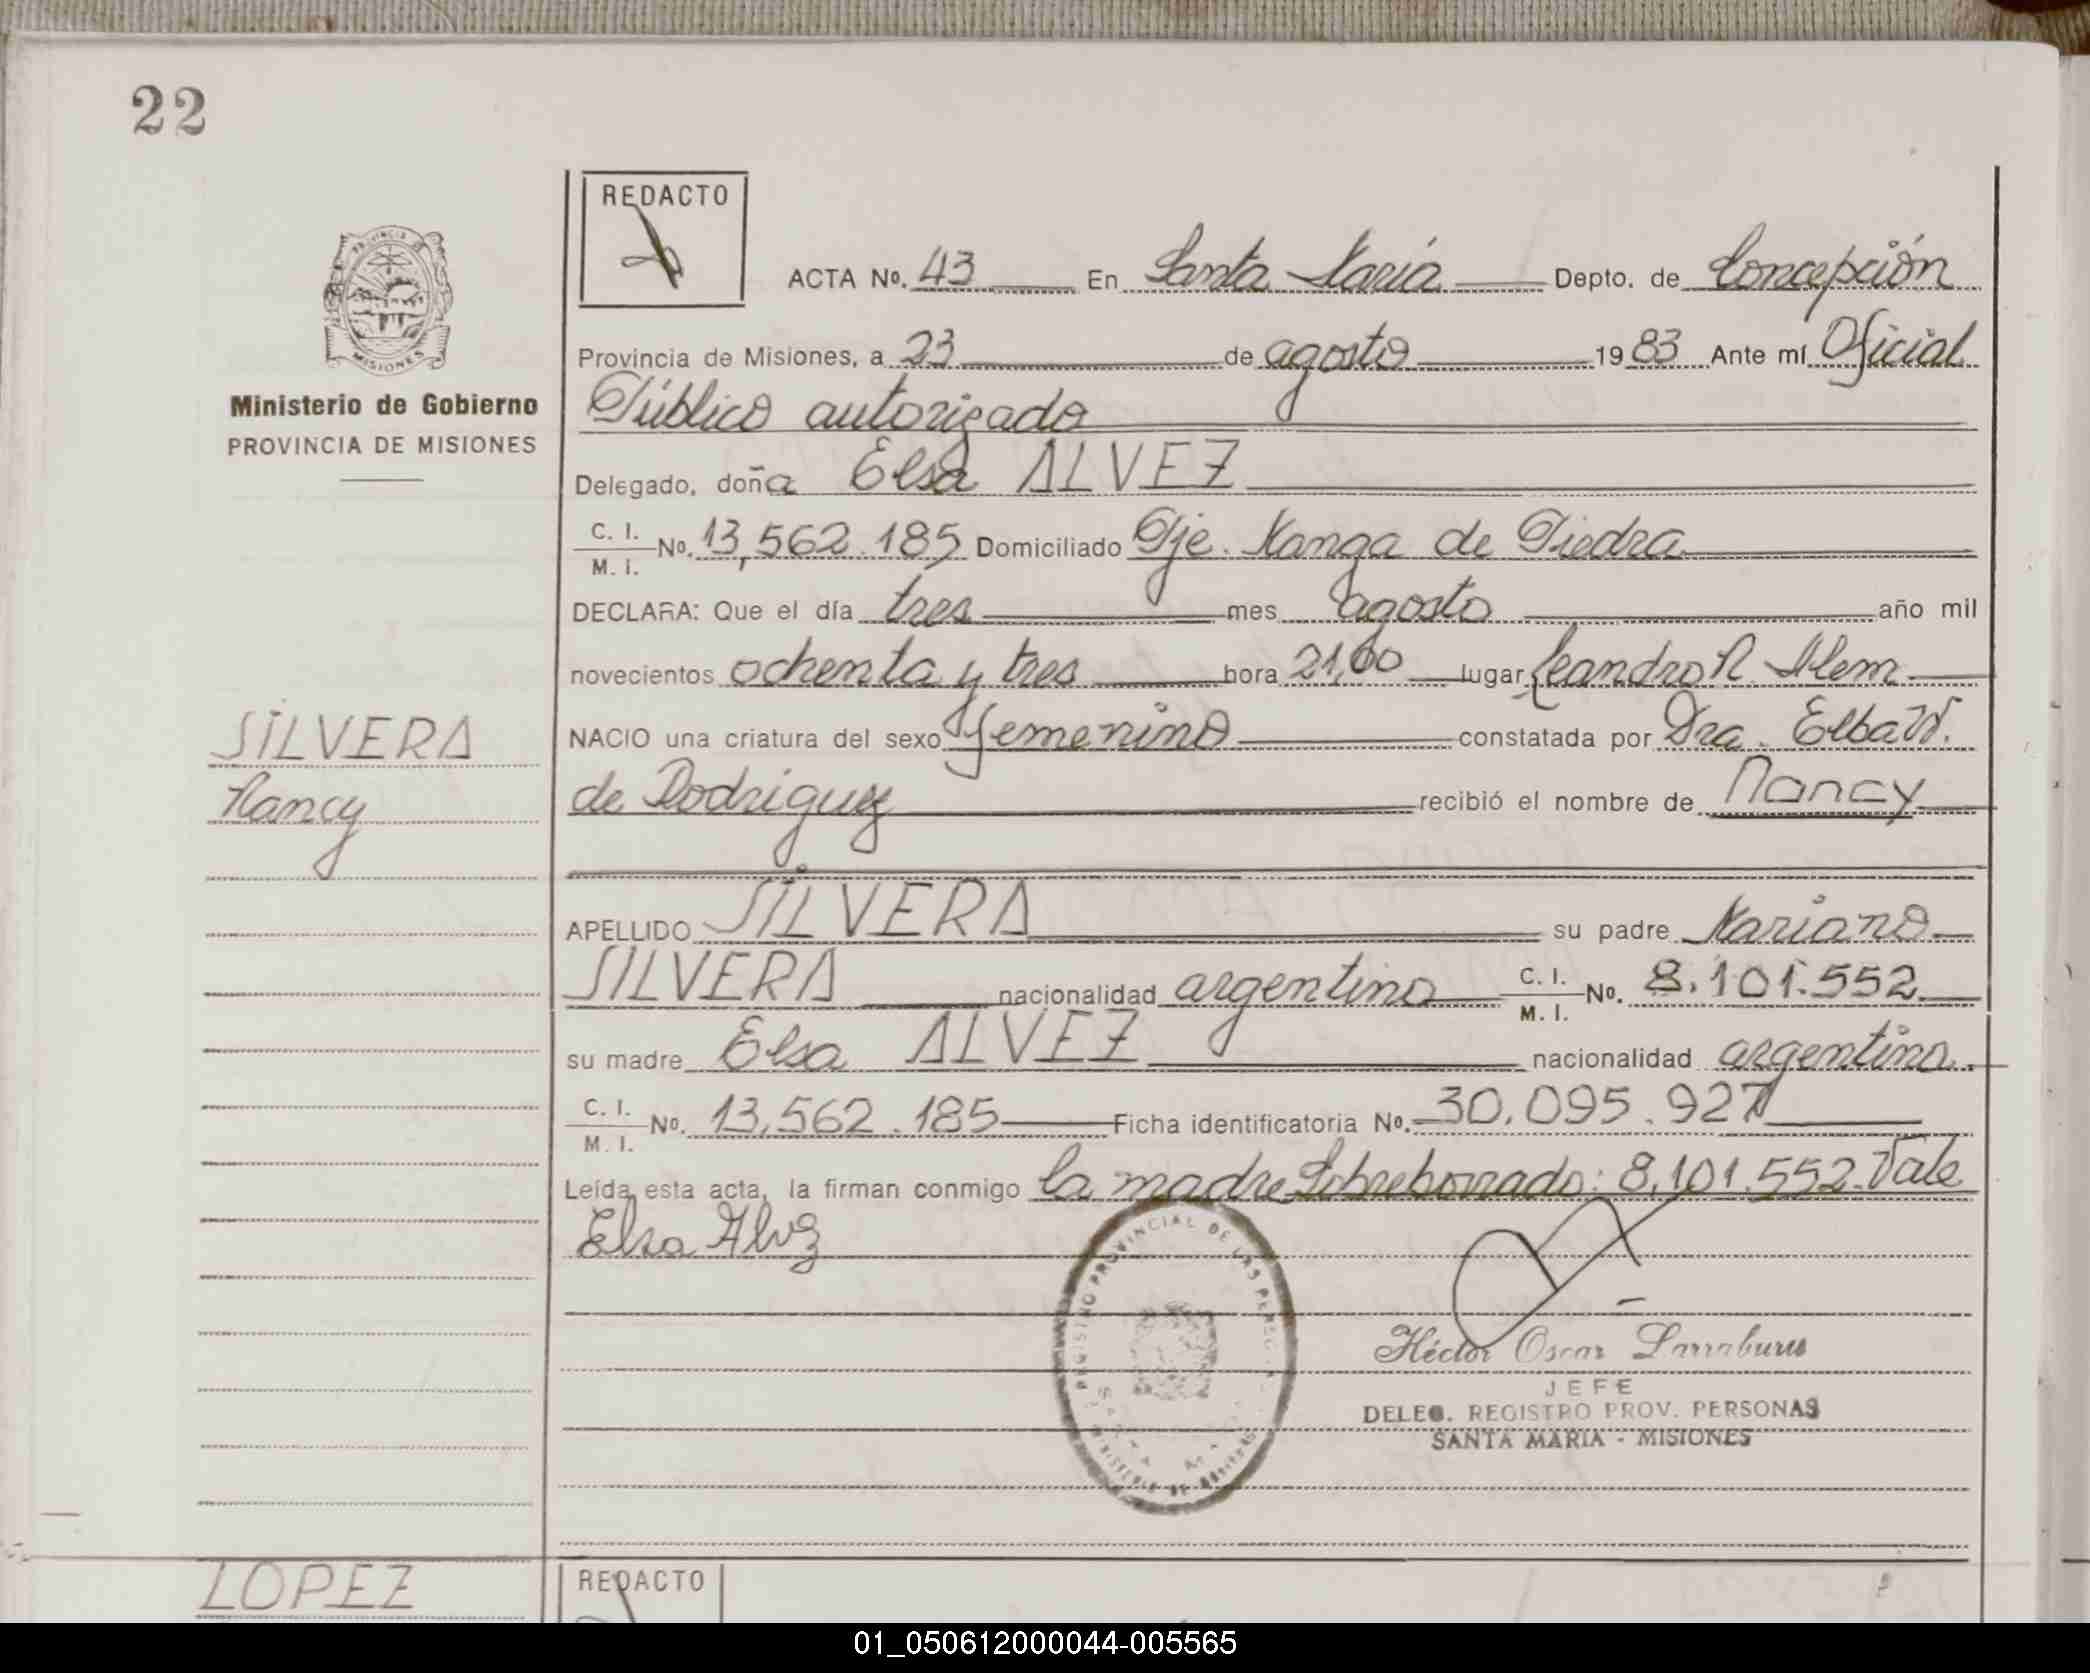 22
REDACTO
ACTA No. 43 En Santa María Depto. de Concepción
PROVINCIA
MISIONES
Ministerio de Gobierno
PROVINCIA DE MISIONES
Provincia de Misiones, a 23 de agosto 1983 Ante mí Oficial
Público autorizado
Delegado, doña Elsa ALVEZ
C. I.
M. I. No. 13,562.185 Domiciliado Pje. Manga de Piedra
DECLARA: Que el día tres mes agosto año mil
novecientos ochenta y tres hora 21,00 lugar Leandro N. Alem
SILVERA
Nancy
NACIO una criatura del sexo femenino constatada por Dra. Elba W.
de Rodriguez recibió el nombre de Nancy
APELLIDO SILVERA su padre Mariano
SILVERA nacionalidad argentino C. I. M. I. No. 8.101.552
su madre Elsa ALVEZ nacionalidad argentina
C. I. M. I. No. 13,562.185 Ficha identificatoria No. 30.095.927
Leída esta acta, la firman conmigo la madre Sobreborrado: 8,101.552. Vale
Elsa Alvz
REGISTRO PROVINCIAL DE LAS PERSONAS
Héctor Oscar Larraburu
JEFE
DELEG. REGISTRO PROV. PERSONAS
SANTA MARIA - MISIONES
LOPEZ
REDACTO
01_050612000044-005565